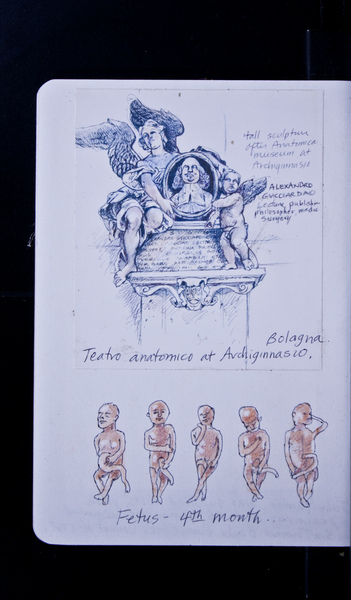 Hall sculpture
after Anatomica
museum at
Archiginnasio
ALEXANDRO
GUICCIARDAO
Lecture, publish
philosopher, medic
surgery
Bologna.
Teatro anatomico at Archiginnasio.
Fetus - 4th month..